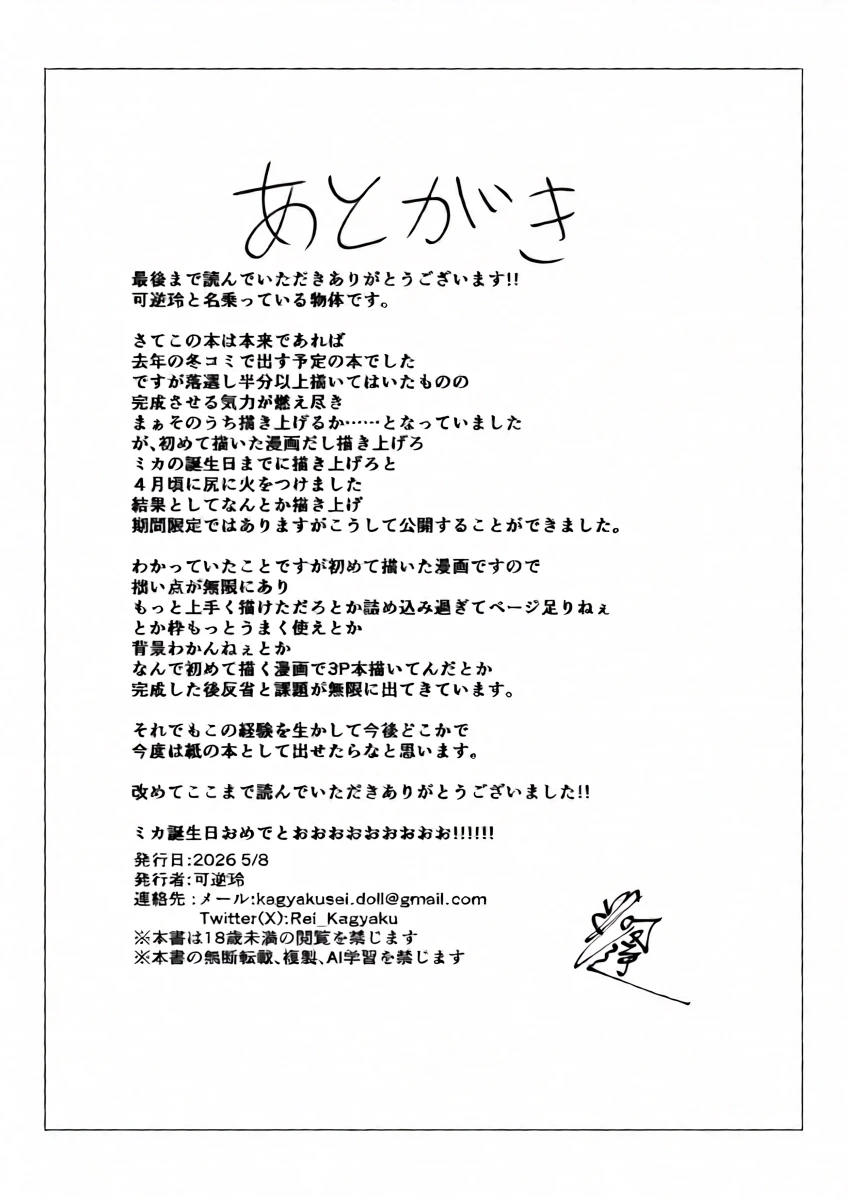 あとがき
最後まで読んでいただきありがとうございます!!
可逆玲と名乗っている物体です。
さてこの本は本来であれば
去年の冬コミで出す予定の本でした
ですが落選し半分以上描いてはいたものの
完成させる気力が燃え尽き
まぁそのうち描き上げるか……となっていました
が、初めて描いた漫画だし描き上げろ
ミカの誕生日までに描き上げろと
4月頃に尻に火をつけました
結果としてなんとか描き上げ
期間限定ではありますがこうして公開することができました。
わかっていたことですが初めて描いた漫画ですので
拙い点が無限にあり
もっと上手く描けただろとか詰め込み過ぎてページ足りねぇ
とか枠もっとうまく使えとか
背景わかんねぇとか
なんで初めて描く漫画で3P本描いてんだとか
完成した後反省と課題が無限に出てきています。
それでもこの経験を生かして今後どこかで
今度は紙の本として出せたらなと思います。
改めてここまで読んでいただきありがとうございました!!
ミカ誕生日おめでとおおおおおおおおお!!!!!!
発行日:2026 5/8
発行者:可逆玲
連絡先:メール:kagyakusei.doll@gmail.com
Twitter(X):Rei_Kagyaku
※本書は18歳未満の閲覧を禁じます
※本書の無断転載、複製、AI学習を禁じます